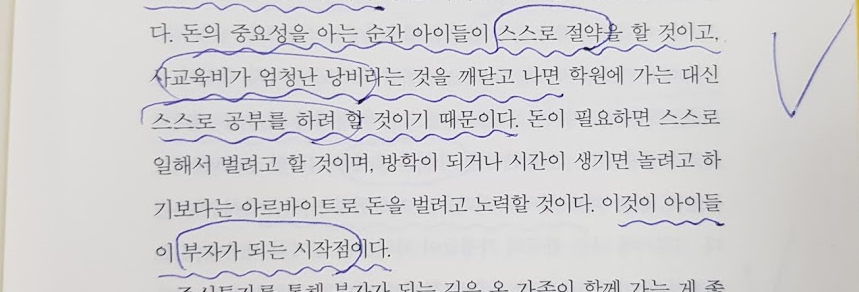 다. 돈의 중요성을 아는 순간 아이들이 스스로 절약을 할 것이고,
사교육비가 엄청난 낭비라는 것을 깨닫고 나면 학원에 가는 대신
스스로 공부를 하려 할 것이기 때문이다. 돈이 필요하면 스스로
일해서 벌려고 할 것이며, 방학이 되거나 시간이 생기면 놀려고 하
기보다는 아르바이트로 돈을 벌려고 노력할 것이다. 이것이 아이들
이 부자가 되는 시작점이다.
주식투자를 통해 부자가 되는 길은 온 가족이 함께 가는 게 좋